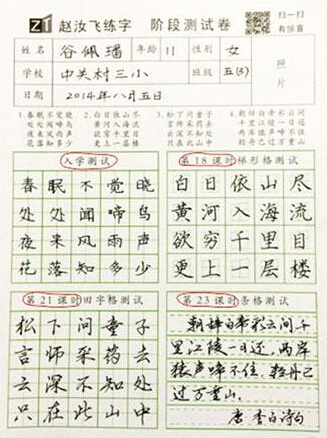 ZT 赵汝飞练字 阶段测试卷 扫一扫 有惊喜
姓名 谷佩璠 年龄 11 性别 女
学校 中关村三小 班级 五(3)
日期 2014年八月五日
照片
1.春眠不觉晓 2.白日依山尽 3.松下问童子 4.朝辞白帝彩云间
处处闻啼鸟 黄河入海流 言师采药去 千里江陵一日还
夜来风雨声 欲穷千里目 只在此山中 两岸猿声啼不住
花落知多少 更上一层楼 云深不知处 轻舟已过万重山
入学测试
春眠不觉晓
处处闻啼鸟
夜来风雨声
花落知多少
第18课时梯形格测试
白日依山尽
黄河入海流
欲穷千里目
更上一层楼
第21课时田字格测试
松下问童子
言师采药去
云深不知处
只在此山中
第23课时条格测试
朝辞白帝彩云间千
里江陵一日还,两岸
猿声啼不住,轻舟已
过万重山。
唐 李白诗句